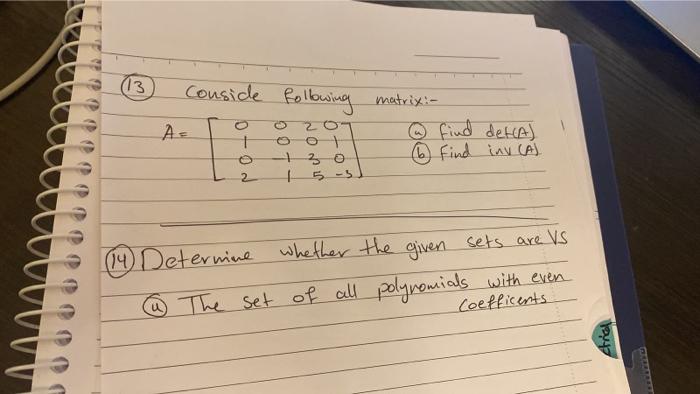 13 Conside following matrix:-
A = [ 0 0 2 0 (a) find det(A)
1 0 0 1 (b) Find inv(A)
0 -1 3 0
2 1 5 -3 ]
14 Determine whether the given sets are VS
(a) The set of all polynomials with even
Coefficents